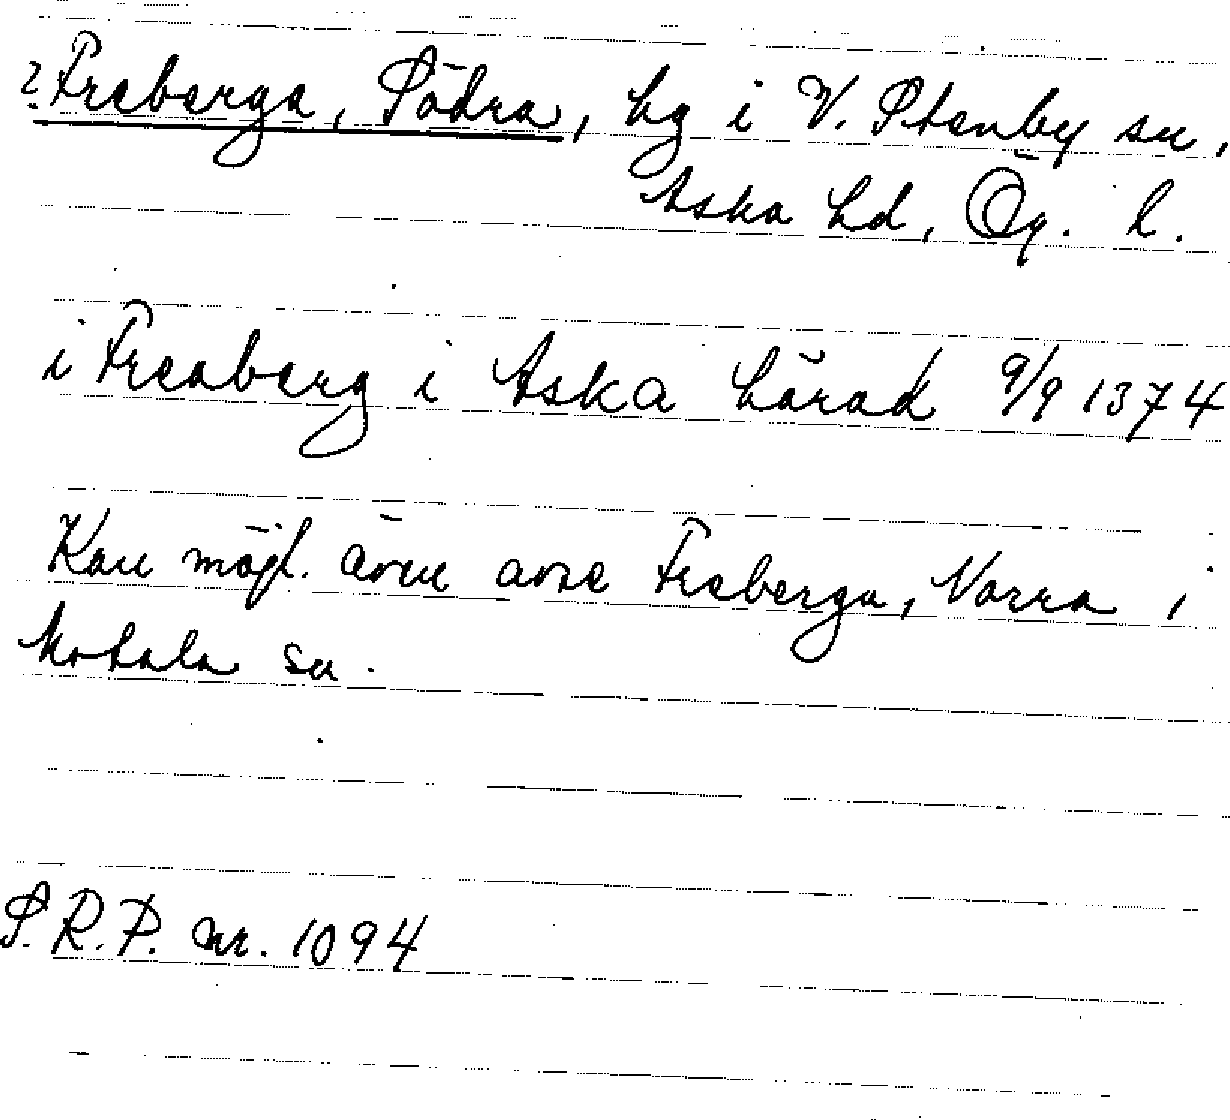 ? Freberga, Södra, hg i V. Stenby sn,
Aska hd, Ög. l.
i Freaberg i Aska härad 9/9 1374
Kan möjl. även avse Freberga, Norra i
Motala sn.
S.R.P. nr. 1094